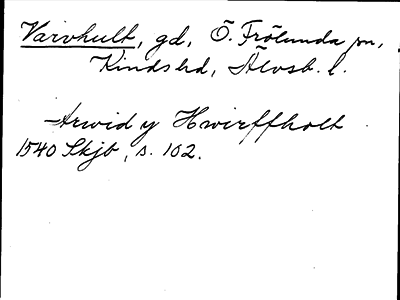 Varvhult, gd, Ö. Frölunda sn,
Kinds hd, Älvsb. l.
Arwid y Hwerffholt
1540 Skjb, s. 162.